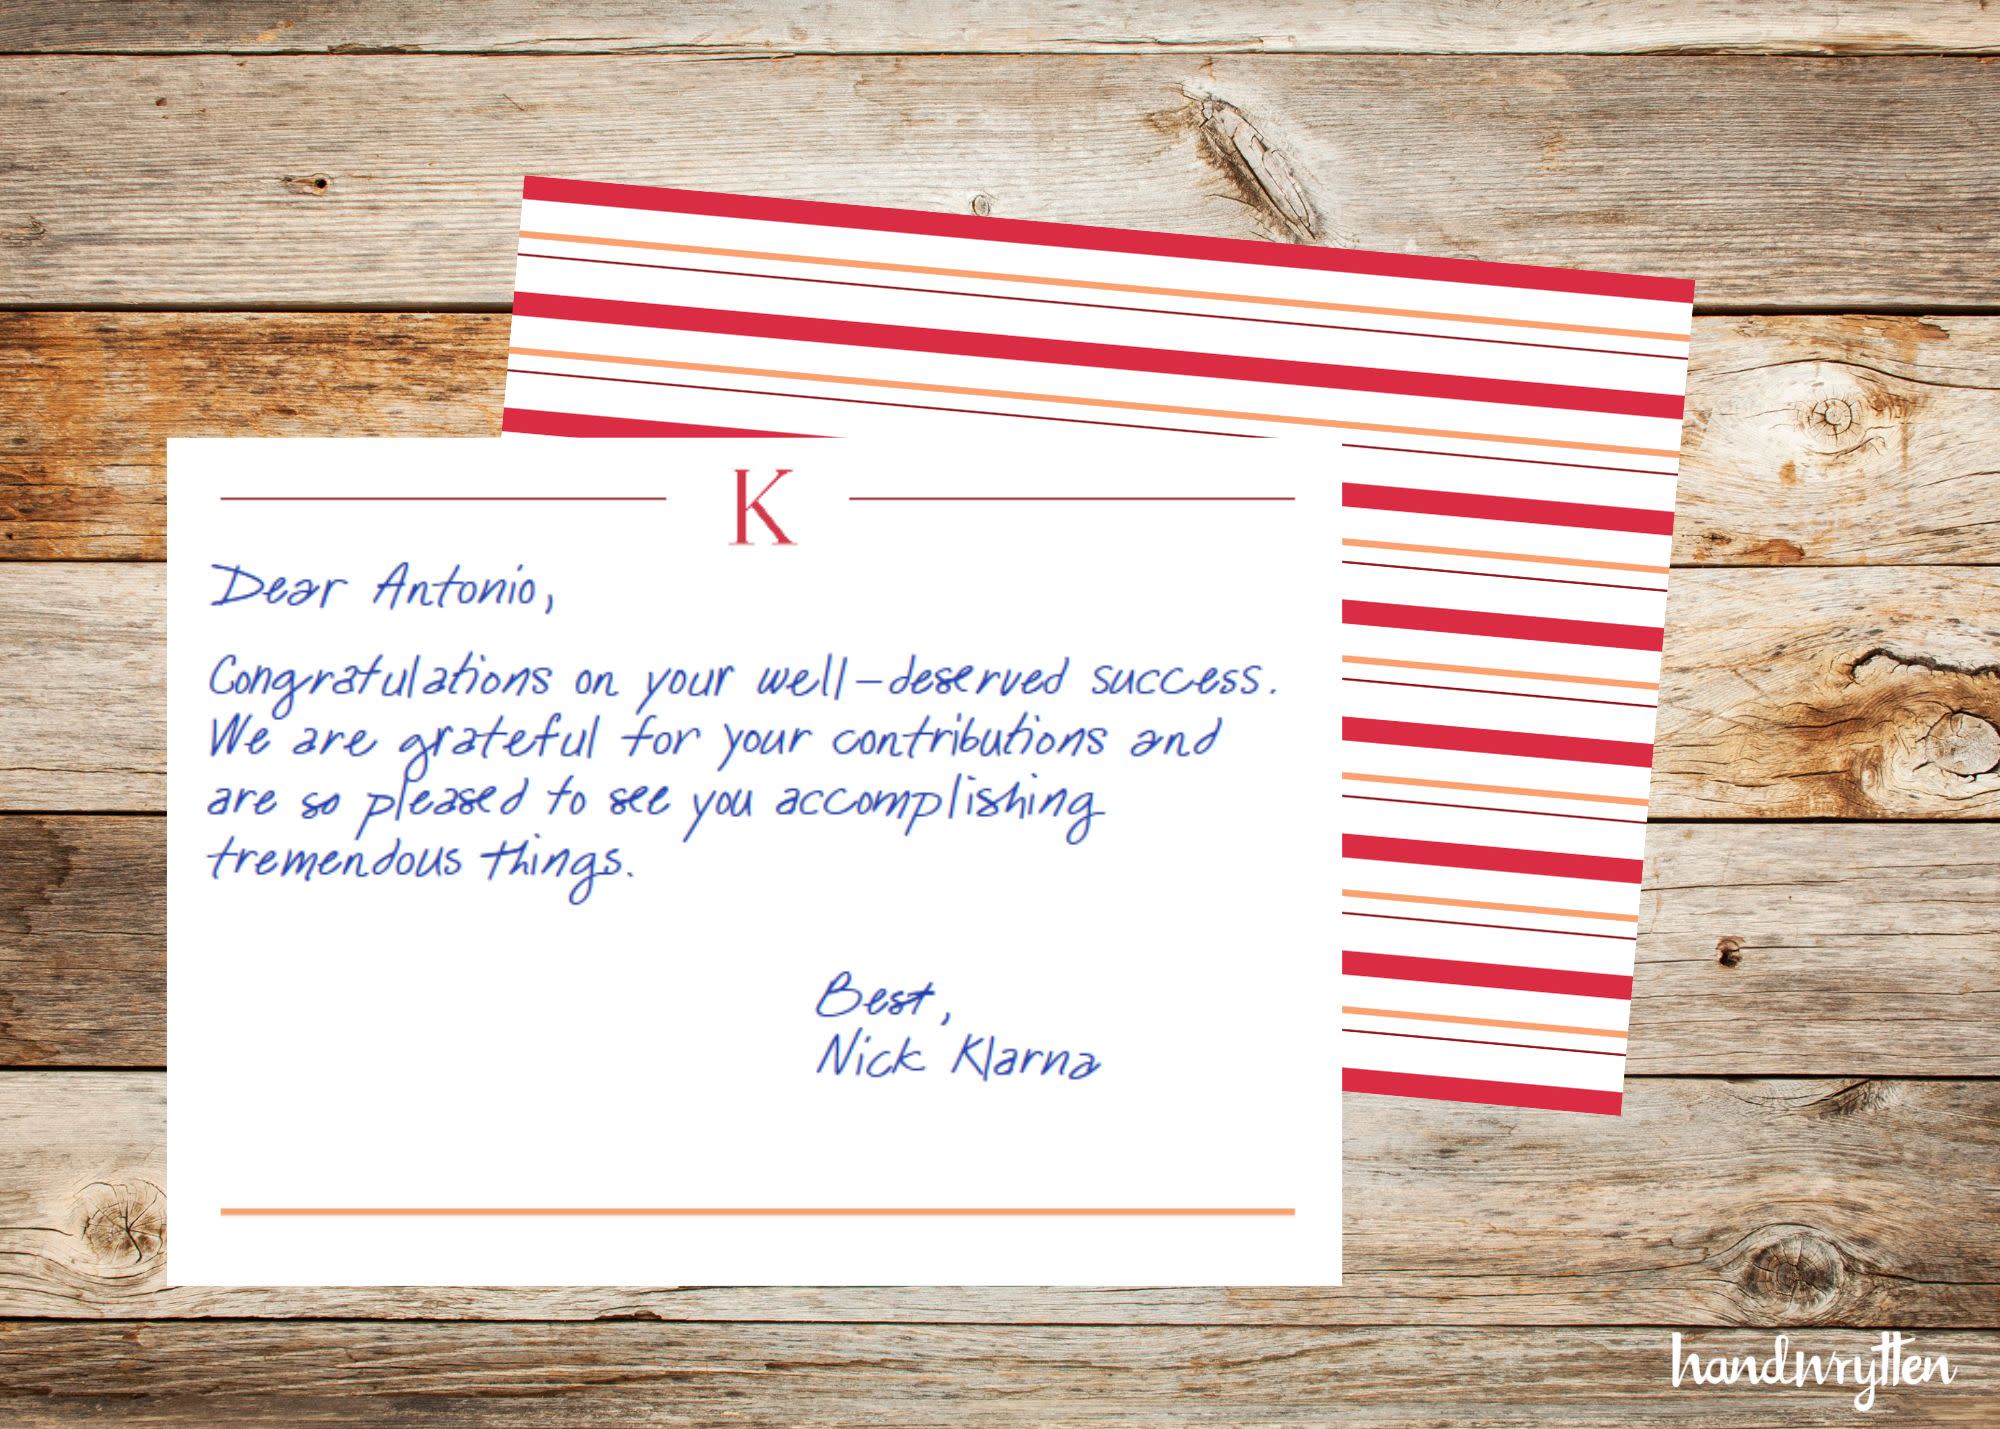 K
Dear Antonio,
Congratulations on your well-deserved success.
We are grateful for your contributions and
are so pleased to see you accomplishing
tremendous things.
Best,
Nick Klarna
handwrytten